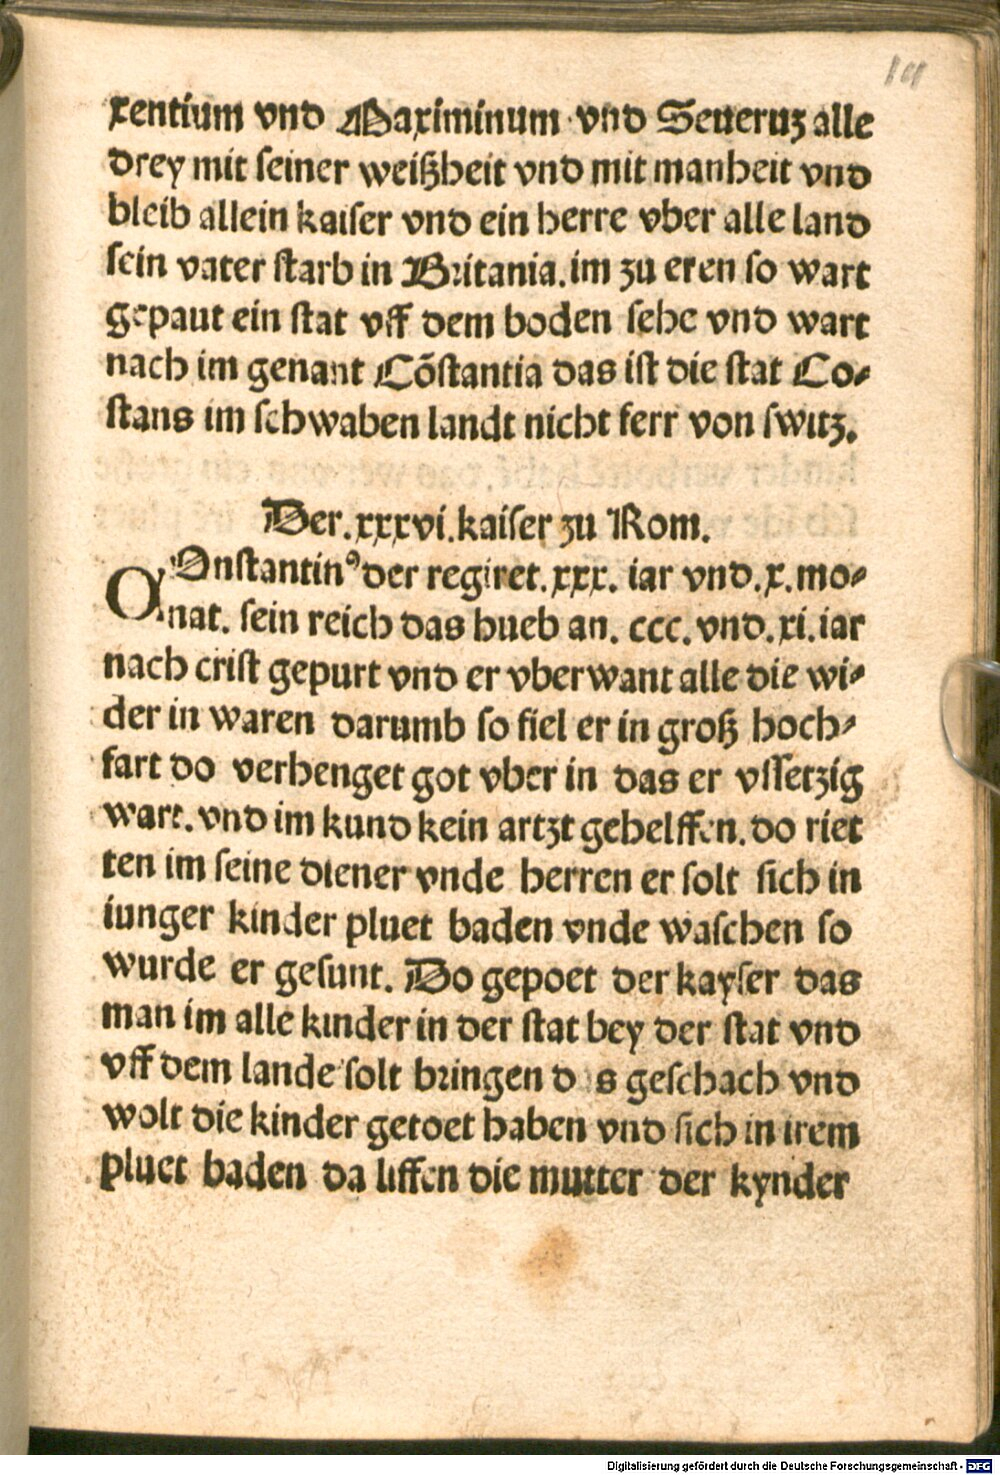 101
xentium vnd Maximinum vnd Seueruʒ alle
drey mit seiner weißheit vnd mit manheit vnd
bleib allein kaiser vnd ein herre vber alle land
sein vater starb in Britania. im zu eren so wart
gepaut ein stat vff dem boden sehe vnd wart
nach im genant Cõstantia das ist die stat Co⸗
stans im schwaben landt nicht ferr von switz.
Der .xxxvi. kaiser zu Rom.
Onstantinꝰ der regiret .xxx. iar vnd .x. mo⸗
nat. sein reich das hueb an. ccc. vnd. xi. iar
nach crist gepurt vnd er vberwant alle die wi⸗
der in waren darumb so fiel er in groß hoch⸗
fart do verhenget got vber in das er vssetzig
wart. vnd im kund kein artzt gehelffen. do riet
ten im seine diener vnde herren er solt sich in
iunger kinder pluet baden vnde waschen so
wurde er gesunt. Do gepoet der kayser das
man im alle kinder in der stat bey der stat vnd
vff dem lande solt bringen d s geschach vnd
wolt die kinder getoet haben vnd sich in irem
pluet baden da liffen die mutter der kynder
Digitalisierung gefördert durch die Deutsche Forschungsgemeinschaft - DFG